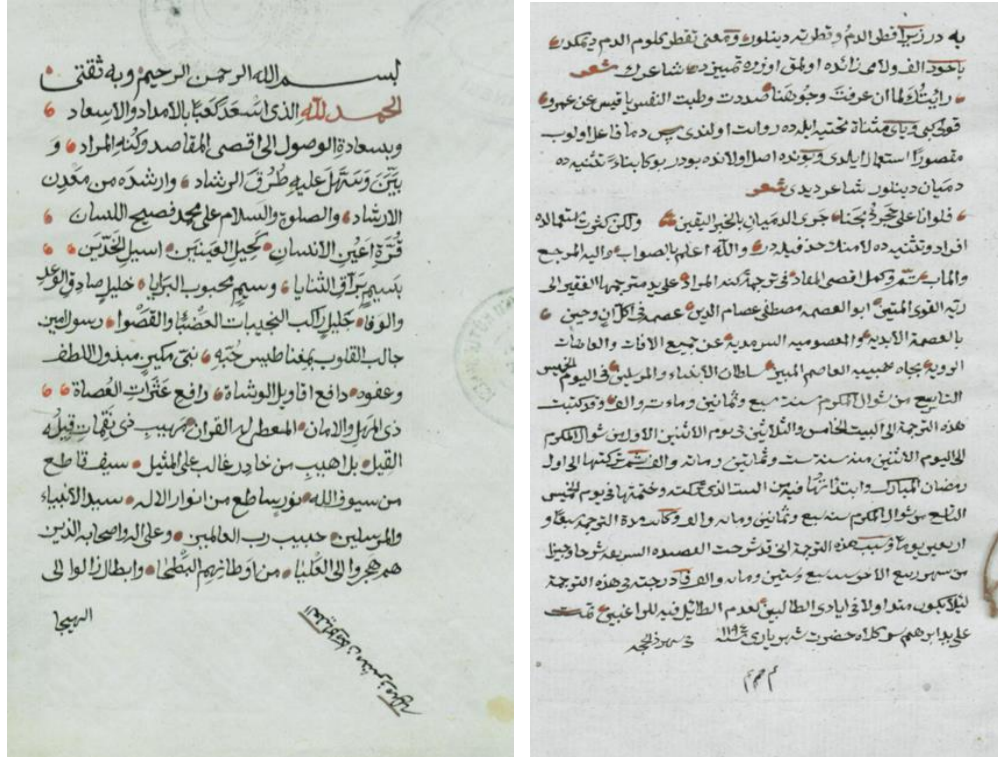 بسم الله الرحمن الرحيم وبه ثقتي
الحمد لله الذي اسعد كعبا بالامداد والاسعاد
وبسعادة الوصول الى اقصى المقاصد وكنه المراد و
بين وسهل عليه طرق الرشاد وارشده من معدن
الارشاد والصلوة والسلام على محمد فصيح اللسان
قرة اعين الانسان كحيل العينين اسيل الخدين
بسيم براق الثنايا وسيم محبوب البرايا خليل صادق الوعد
والوفا جليل راكب النجيبات العضبا والقصوا رسول امين
جالب القلوب بمغناطيس حبه نبي مكين مبذول اللطف
وعفوه دافع اقاويل الوشاة رافع عثرات العصاة
ذي المهل والامان المعطى له القران مهيب ذي نقمات قيله
القيل بل اهيب من خادر غالب على المثيل سيف قاطع
من سيوف الله نور ساطع من انوار الاله سيد الانبياء
والمرسلين حبيب رب العالمين وعلى اله واصحابه الذين
هم هجروا الى العليا من اوطانهم البطحا وابطال زالوا الى
الهيجا
به در زيرا قطر الدم وقطرته دينلور ومعنى تقطر كلوم الدم ديمكدر
ياخود الف ولامى زائده اولمق اوزره تمييزدر شاعرك شعر
رايتك لما ان عرفت وجوهنا صددت وطبت النفس يا قيس عن عمرو
قولى كبى وياى مثناة تحتيه ايله ده روايت اولندى پس دما فاعل اولوب
مقصورا استعمال ايلدى وبونده اصل اولانده بودر بوكا بناء تثنيه ده
دميان دينلور شاعر ديدى شعر
فلو انا على حجر ذبحنا جرى الدميان بالخبر اليقين ولكن كثرت استعمالده
افراد وتثنيه ده لامنك حذف يله در والله اعلم بالصواب واليه المرجع
والماب تم وكمل اقصى المفاد فى ترجمة كنه المراد على يد مترجمها الفقير الى
ربه القوى المتين ابو العصمه مصطفى عصام الدين عصمه فى كل ان وحين
بالعصمة الابديه والمعصوميه السرمديه عن جميع الافات والعاهات
الرديه بجاه حبيبه العاصم المبين سلطان الانبياء والمرسلين فى اليوم الخميس
التاسع من شوال المكرم سنة سبع وثمانين ومائة والف وقد كتبت
هذه الترجمة الى البيت الخامس والثلاثين فى يوم الاثنين الاول من شوال المكرم
الى اليوم الاثنين منه سنة ست وثمانين ومائه والف ثم تركتها الى اول
رمضان المبارك وابتدأتها فيه من الستة الذى تمكنه وختمتها فى يوم الخميس
التاسع من شوال المكرم سنة سبع وثمانين ومائه والف وكانت مدة الترجمة سبعا و
اربعين يوما وسبب هذه الترجمة انى قد شرحت القصيده السريعه شرحا وجيزا
من شهر ربيع الاخر سنة سبع وستين ومائه والف قادرجته فى هذه الترجمة
لئلا يكون متداولا فى ايادى الطالبين لعدم الطائل فيه للراغبين تمت
على يد ابراهيم سركلاه حضرت شهريارى سنة ١١٩٢ فى شهر ذى الحجه